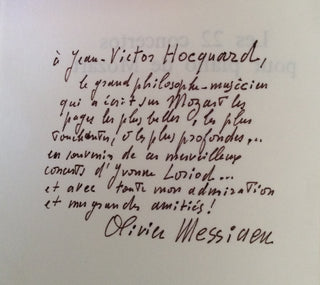 Les 22 concertos
pour piano de Mozart
à Jean-Victor Hocquard,
le grand philosophe-musicien
qui a écrit sur Mozart les
pages les plus belles, les plus
touchantes, et les plus profondes...
en souvenir de ces merveilleux
concerts d'Yvonne Loriod...
et avec toute mon admiration
et mes grandes amitiés!
Olivier Messiaen